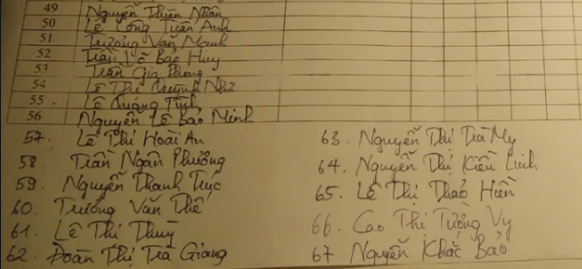 49 Nguyễn Thiên Nhân
50 Lê Công Tuấn Anh
51 Trương Văn Mạnh
52 Trần Võ Bảo Huy
53 Trần Gia Phong
54 Lê Thị Quỳnh Như
55 Lê Quang Tịnh
56 Nguyễn Lê Bảo Minh
57. Lê Thị Hoài An
58. Trần Ngọc Phượng
59. Nguyễn Thanh Trúc
60. Trương Văn Thế
61. Lê Thị Thuỳ
62. Đoàn Thị Trà Giang
63. Nguyễn Thị Trà My
64. Nguyễn Thị Kiều Linh
65. Lê Thị Thảo Hiền
66. Cao Thị Tường Vy
67. Nguyễn Khắc Bảo